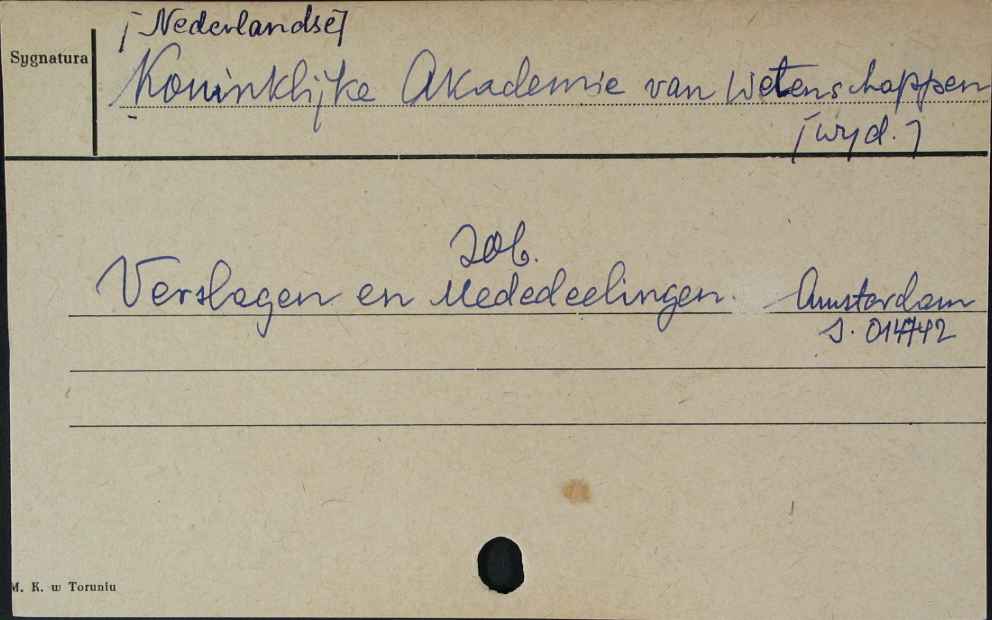 [Nederlandse]
Sygnatura
Koninklijke Akademie van Wetenschappen
[wyd.]
Zob.
Verslagen en Mededeelingen. Amsterdam
S. 014742
M. K. w Toruniu